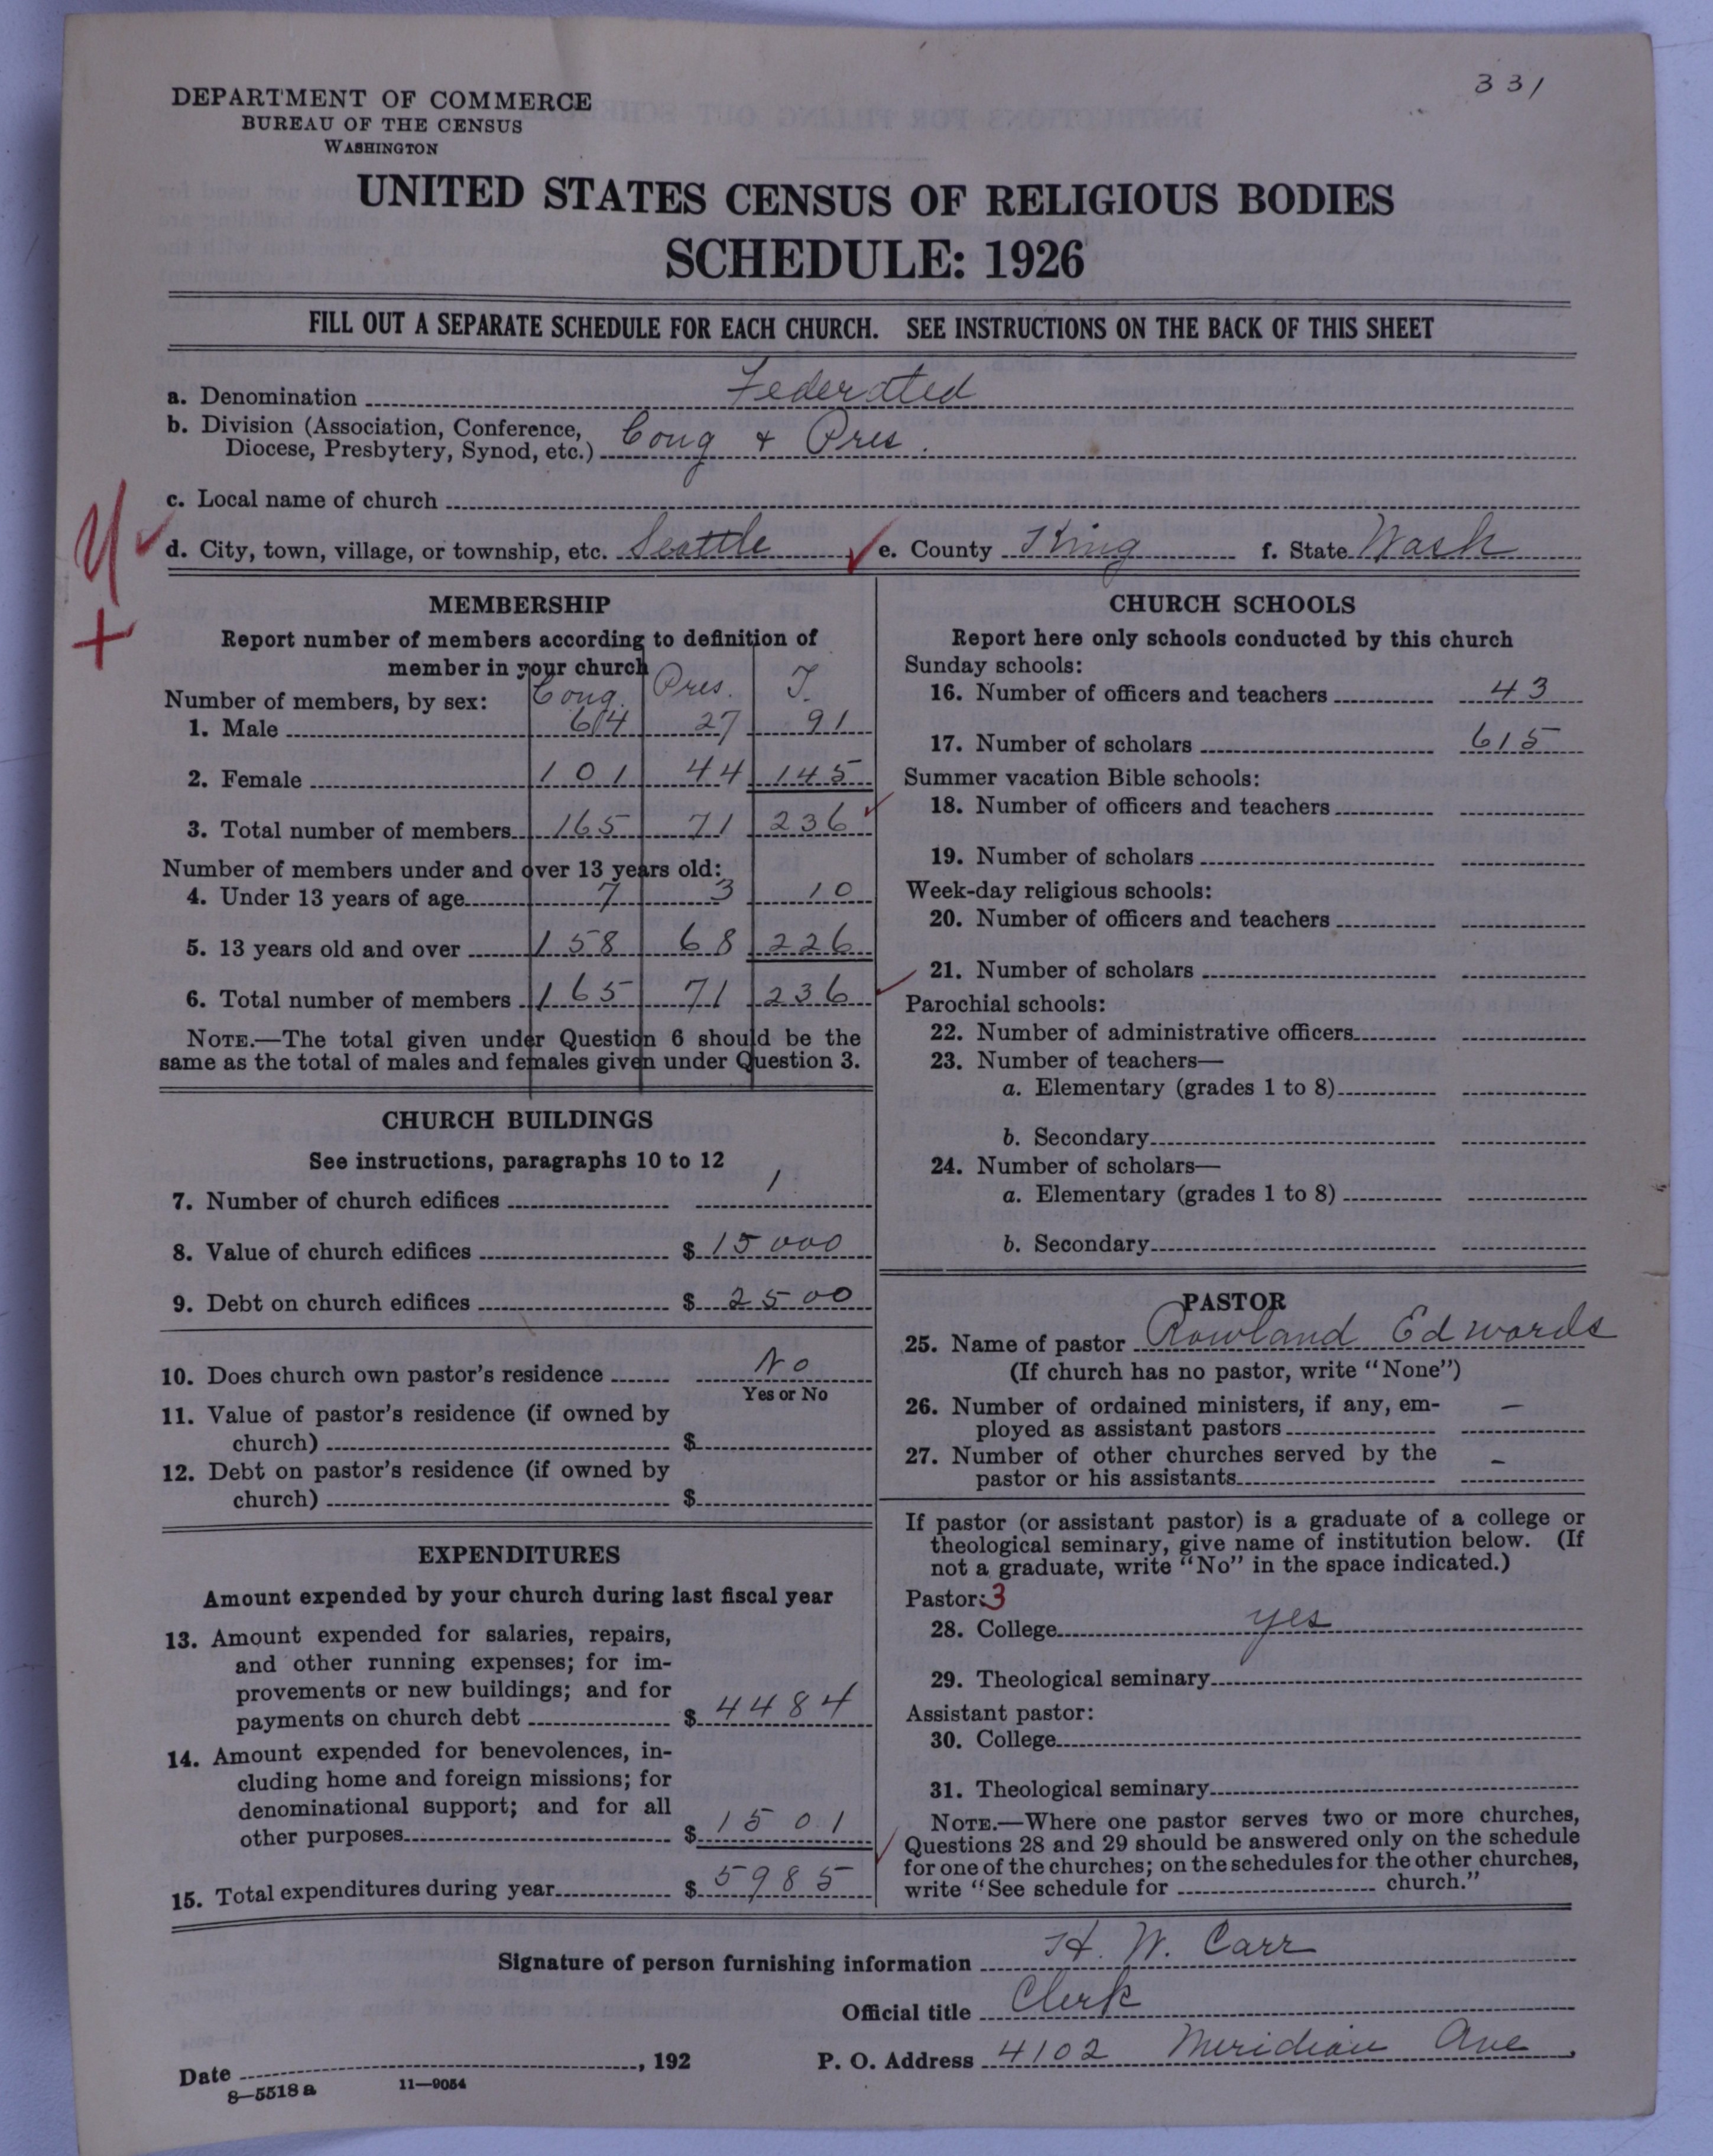 331
DEPARTMENT OF COMMERCE
BUREAU OF THE CENSUS
WASHINGTON
UNITED STATES CENSUS OF RELIGIOUS BODIES
SCHEDULE: 1926
FILL OUT A SEPARATE SCHEDULE FOR EACH CHURCH. SEE INSTRUCTIONS ON THE BACK OF THIS SHEET
a. Denomination Federated
b. Division (Association, Conference,
Diocese, Presbytery, Synod, etc.) Cong + Pres.
c. Local name of church
d. City, town, village, or township, etc. Seattle e. County King f. State Wash
MEMBERSHIP
Report number of members according to definition of
member in your church
Number of members, by sex: Cong. Pres. T.
1. Male 64 27 91
2. Female 101 44 145
3. Total number of members 165 71 236
Number of members under and over 13 years old:
4. Under 13 years of age 7 3 10
5. 13 years old and over 158 68 226
6. Total number of members 165 71 236
NOTE.—The total given under Question 6 should be the
same as the total of males and females given under Question 3.
CHURCH BUILDINGS
See instructions, paragraphs 10 to 12
7. Number of church edifices 1
8. Value of church edifices $ 15000
9. Debt on church edifices $ 2500
10. Does church own pastor's residence No
Yes or No
11. Value of pastor's residence (if owned by
church) $
12. Debt on pastor's residence (if owned by
church) $
EXPENDITURES
Amount expended by your church during last fiscal year
13. Amount expended for salaries, repairs,
and other running expenses; for im-
provements or new buildings; and for
payments on church debt $ 4484
14. Amount expended for benevolences, in-
cluding home and foreign missions; for
denominational support; and for all
other purposes $ 1501
15. Total expenditures during year $ 5985
CHURCH SCHOOLS
Report here only schools conducted by this church
Sunday schools:
16. Number of officers and teachers 43
17. Number of scholars 615
Summer vacation Bible schools:
18. Number of officers and teachers
19. Number of scholars
Week-day religious schools:
20. Number of officers and teachers
21. Number of scholars
Parochial schools:
22. Number of administrative officers
23. Number of teachers—
a. Elementary (grades 1 to 8)
b. Secondary
24. Number of scholars—
a. Elementary (grades 1 to 8)
b. Secondary
PASTOR
25. Name of pastor Rowland Edwards
(If church has no pastor, write "None")
26. Number of ordained ministers, if any, em-
ployed as assistant pastors —
27. Number of other churches served by the
pastor or his assistants —
If pastor (or assistant pastor) is a graduate of a college or
theological seminary, give name of institution below. (If
not a graduate, write "No" in the space indicated.)
Pastor: 3
28. College yes
29. Theological seminary
Assistant pastor:
30. College
31. Theological seminary
NOTE.—Where one pastor serves two or more churches,
Questions 28 and 29 should be answered only on the schedule
for one of the churches; on the schedules for the other churches,
write "See schedule for church."
Signature of person furnishing information H. W. Carr
Official title Clerk
Date , 192 P. O. Address 4102 Meridian Ave
8—5518 a 11—9054